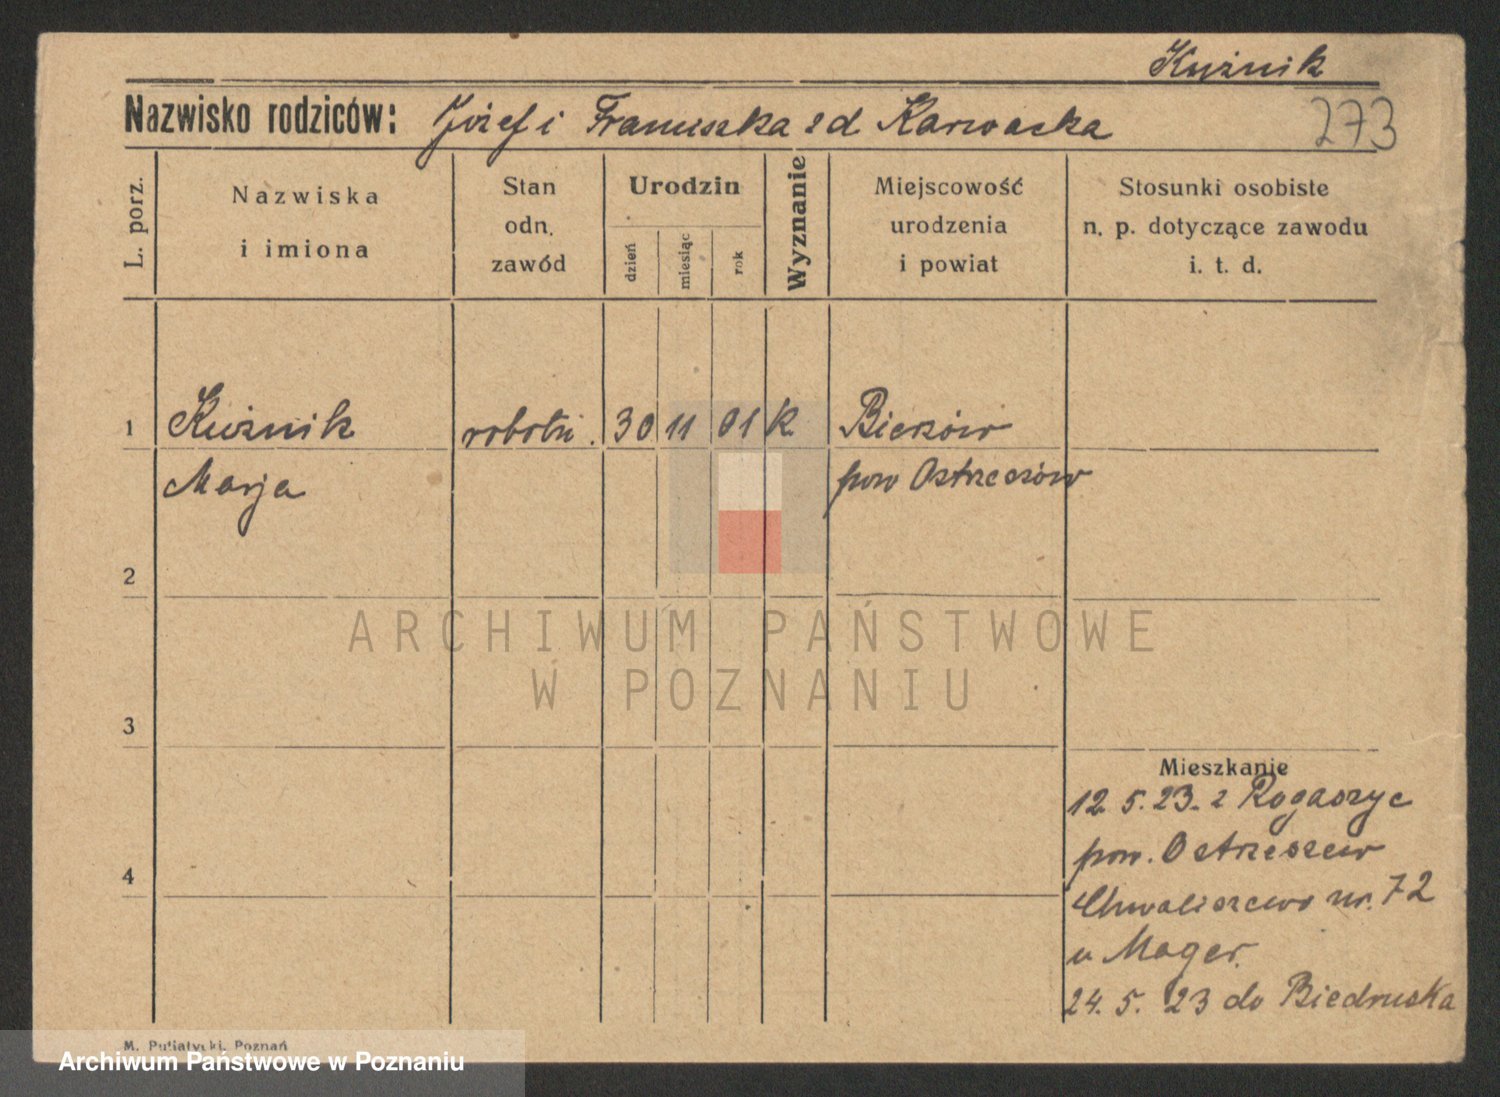 Kuźnik
Nazwisko rodziców: Józef i Franciszka z d Karwacka
273
L. porz.
Nazwiska
i imiona
Stan
odn.
zawód
Urodzin
dzień
miesiąc
rok
Wyznanie
Miejscowość
urodzenia
i powiat
Stosunki osobiste
n. p. dotyczące zawodu
i. t. d.
1 Kuźnik robotn. 30 11 01 k
Marja pow Ostrzeszów
2
3
4
Mieszkanie
12. 5. 23. z Rogaszyc
pow. Ostrzeszew
Chwaliszewo nr. 72
u Mager.
24. 5. 23 do Biedruska
M. Putiatycki, Poznań
ARCHIWUM PAŃSTWOWE
W POZNANIU
Archiwum Państwowe w Poznaniu